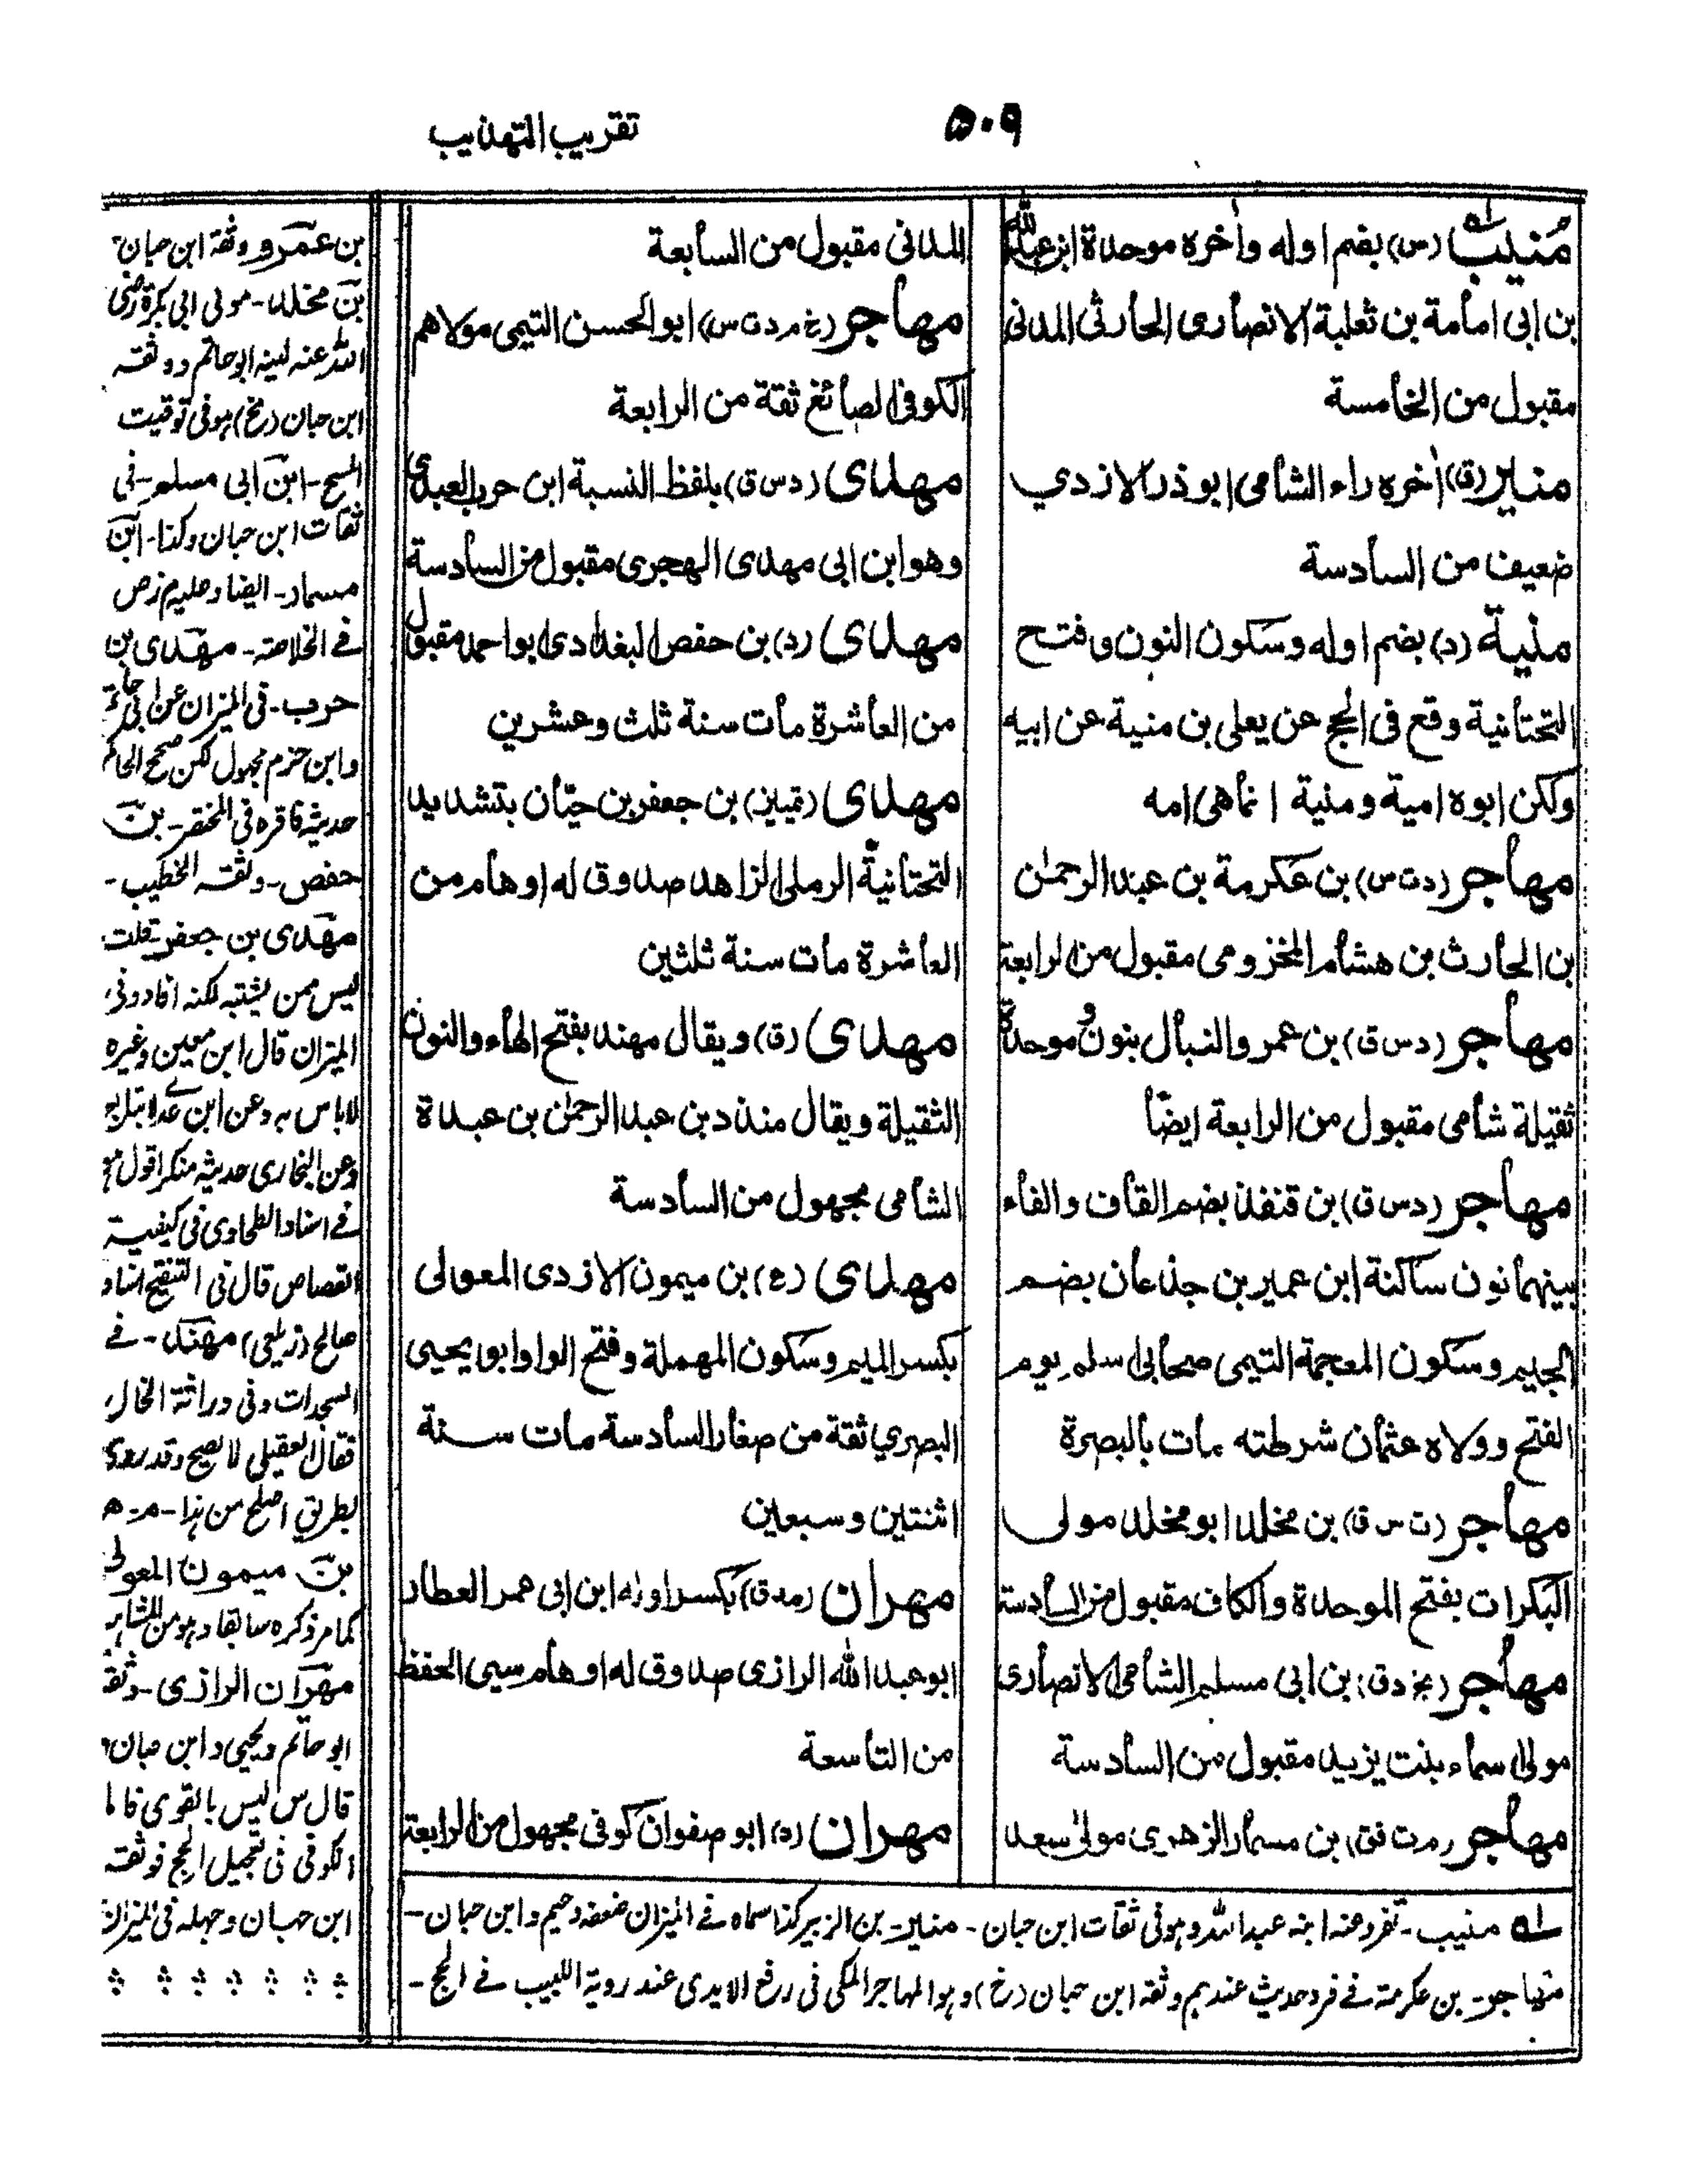 ۵۰۹
تقريب التهذيب
مُنيب (س) بضم اوله وأخره موحدة ابن عبدالله
بن ابى امامة بن ثعلبة الانصارى الحارثى المدنى
مقبول من الخامسة
منير (ق) أخره راء الشامى ابو ذر الازدي
ضعيف من السادسة
منية (د) بضم اوله وسكون النون وفتح
التحتانية وقع فى الحج عن يعلى بن منية عن ابيه
ولكن ابوه امية ومنية انما هى امه
مهاجر (د ت س) بن عكرمة بن عبد الرحمٰن
بن الحارث بن هشام المخزومى مقبول من الرابعة
مهاجر (د س ق) بن عمرو النبال بنون وموحدة
ثقيلة شامى مقبول من الرابعة ايضًا
مهاجر (د س ق) بن قنفذ بضم القاف والفاء
بينهما نون ساكنة ابن عمير بن جذعان بضم
الجيم وسكون المعجمة التيمى صحابى اسلم يوم
الفتح وولاه عثمان شرطته مات بالبصرة
مهاجر (ت س ق) بن مخلد ابو مخلد مولى
البكرات بفتح الموحدة والكاف مقبول من السادسة
مهاجر (بخ د ق) بن ابى مسلم الشامى الانصارى
مولى اسماء بنت يزيد مقبول من السادسة
مهاجر (م ت فق) بن مسمار الزهرى مولى سعد
المدنى مقبول من السابعة
مهاجر (خ م د ت س) ابو الحسن التيمى مولاهم
الكوفى الصائغ ثقة من الرابعة
مهدى (د س ق) بلفظ النسبة ابن حرب العبدى
وهو ابن ابى مهدى الهجرى مقبول من السادسة
مهدى (د) بن حفص البغدادى ابو احمد مقبول
من العاشرة مات سنة ثلث وعشرين
مهدى (تمييز) بن جعفر بن حيّان بتشديد
التحتانية الرملى الزاهد صدوق له اوهام من
العاشرة مات سنة ثلثين
مهدى (ق) ويقال مهند بفتح الهاء والنون
الثقيلة ويقال منذد بن عبد الرحمٰن بن عبدة
الشامى مجهول من السادسة
مهدى (ع) بن ميمون الازدى المعولى
بكسر الميم وسكون المهملة وفتح الواو ابو يحيى
البصري ثقة من صغار السادسة مات سنة
اثنتين وسبعين
مهران (مد ق) بكسر اوله ابن ابى عمر العطار
ابو عبد الله الرازى صدوق له اوهام سيى الحفظ
من التاسعة
مهران (د) ابو صفوان كوفى مجهول من الرابعة
بن عمرو وثقة ابن حبان
بن مخلد - مولى ابى بكرة رضى
الله عنه لينه ابو حاتم ووثقه
ابن حبان (مخ) هو فى توقيت
المسح - ابن ابى مسلم - فى
ثقات ابن حبان وكذا - ابن
مسمار - ايضا
فى الخلاصة - مهدى بن
حرب - فى الميزان عن ابى حاتم
وابن حزم مجهول لكن صحح الحاكم
حديثه فاقره فى المختصر - بن
حفص - وثقه الخطيب -
مهدى بن جعفر - قلت
ليس ممن يشتبه لكنه افاد وفى
الميزان قال ابن معين وغيره
لا باس به وعن ابن عدى
وعن البخارى حديثه منكر اقول
فى اسناد الطحاوى فى كيفية
القصاص قال فى التنقيح اسناد
صالح (زيلعى) مهند - فى
السجدات وفى وراثة الخال
فقال العقيلى لا يصح وقد روى
بطريق اصلح من هذا - م - ه
بن ميمون المعولى
كما مر ذكره سابقا وهو من المشاهير
مهران الرازى - وثقه
ابو حاتم ويحيى وابن حبان و
قال س ليس بالقوى فاما
الكوفى فى تعجيل الحج فوثقه
ابن حبان وجهله فى الميزان
له منيب - تفرد عنه ابنه عبد الله وهو فى ثقات ابن حبان - منير - بن الزبير كذا سماه فى الميزان ضعفه دحيم وابن حبان -
مهاجر - بن عكرمة فى فرد حديث عندهم وثقه ابن حبان (مخ) وهو المهاجر المكى فى رفع الايدى عند روية البيت فى الحج -